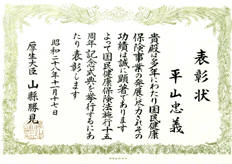 表彰状
平山忠義
貴殿は多年にわたり国民健康
保険事業の発展に尽力されその
功績は誠に顕著であります
よって国民健康保険法施行十五
周年記念式典を挙行するにあ
たり表彰します
昭和二十八年十一月十七日
厚生大臣 山縣勝見